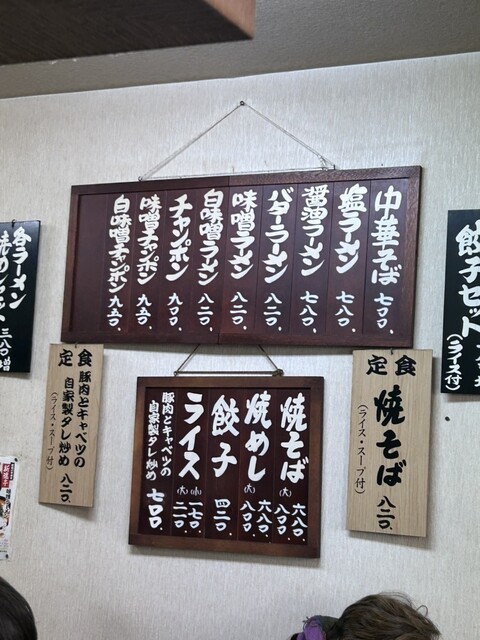 中華そば 七〇〇、
塩ラーメン 七八〇、
醤油ラーメン 七八〇、
バターラーメン 八二〇、
味噌ラーメン 八二〇、
白味噌ラーメン 八二〇、
チャンポン 九〇〇、
味噌チャンポン 九五〇、
白味噌チャンポン 九五〇、
餃子セット
(ライス付)
各ラーメン
三八〇増
定食
焼そば 八二〇、
(ライス・スープ付)
焼そば 六八〇、
(大) 八〇〇、
焼めし 六八〇、
(大) 八〇〇、
餃子 四二〇、
ライス (小) 一七〇、
(大) 二一〇、
豚肉とキャベツの
自家製タレ炒め 七〇〇、
定食
豚肉とキャベツの
自家製タレ炒め 八二〇、
(ライス・スープ付)